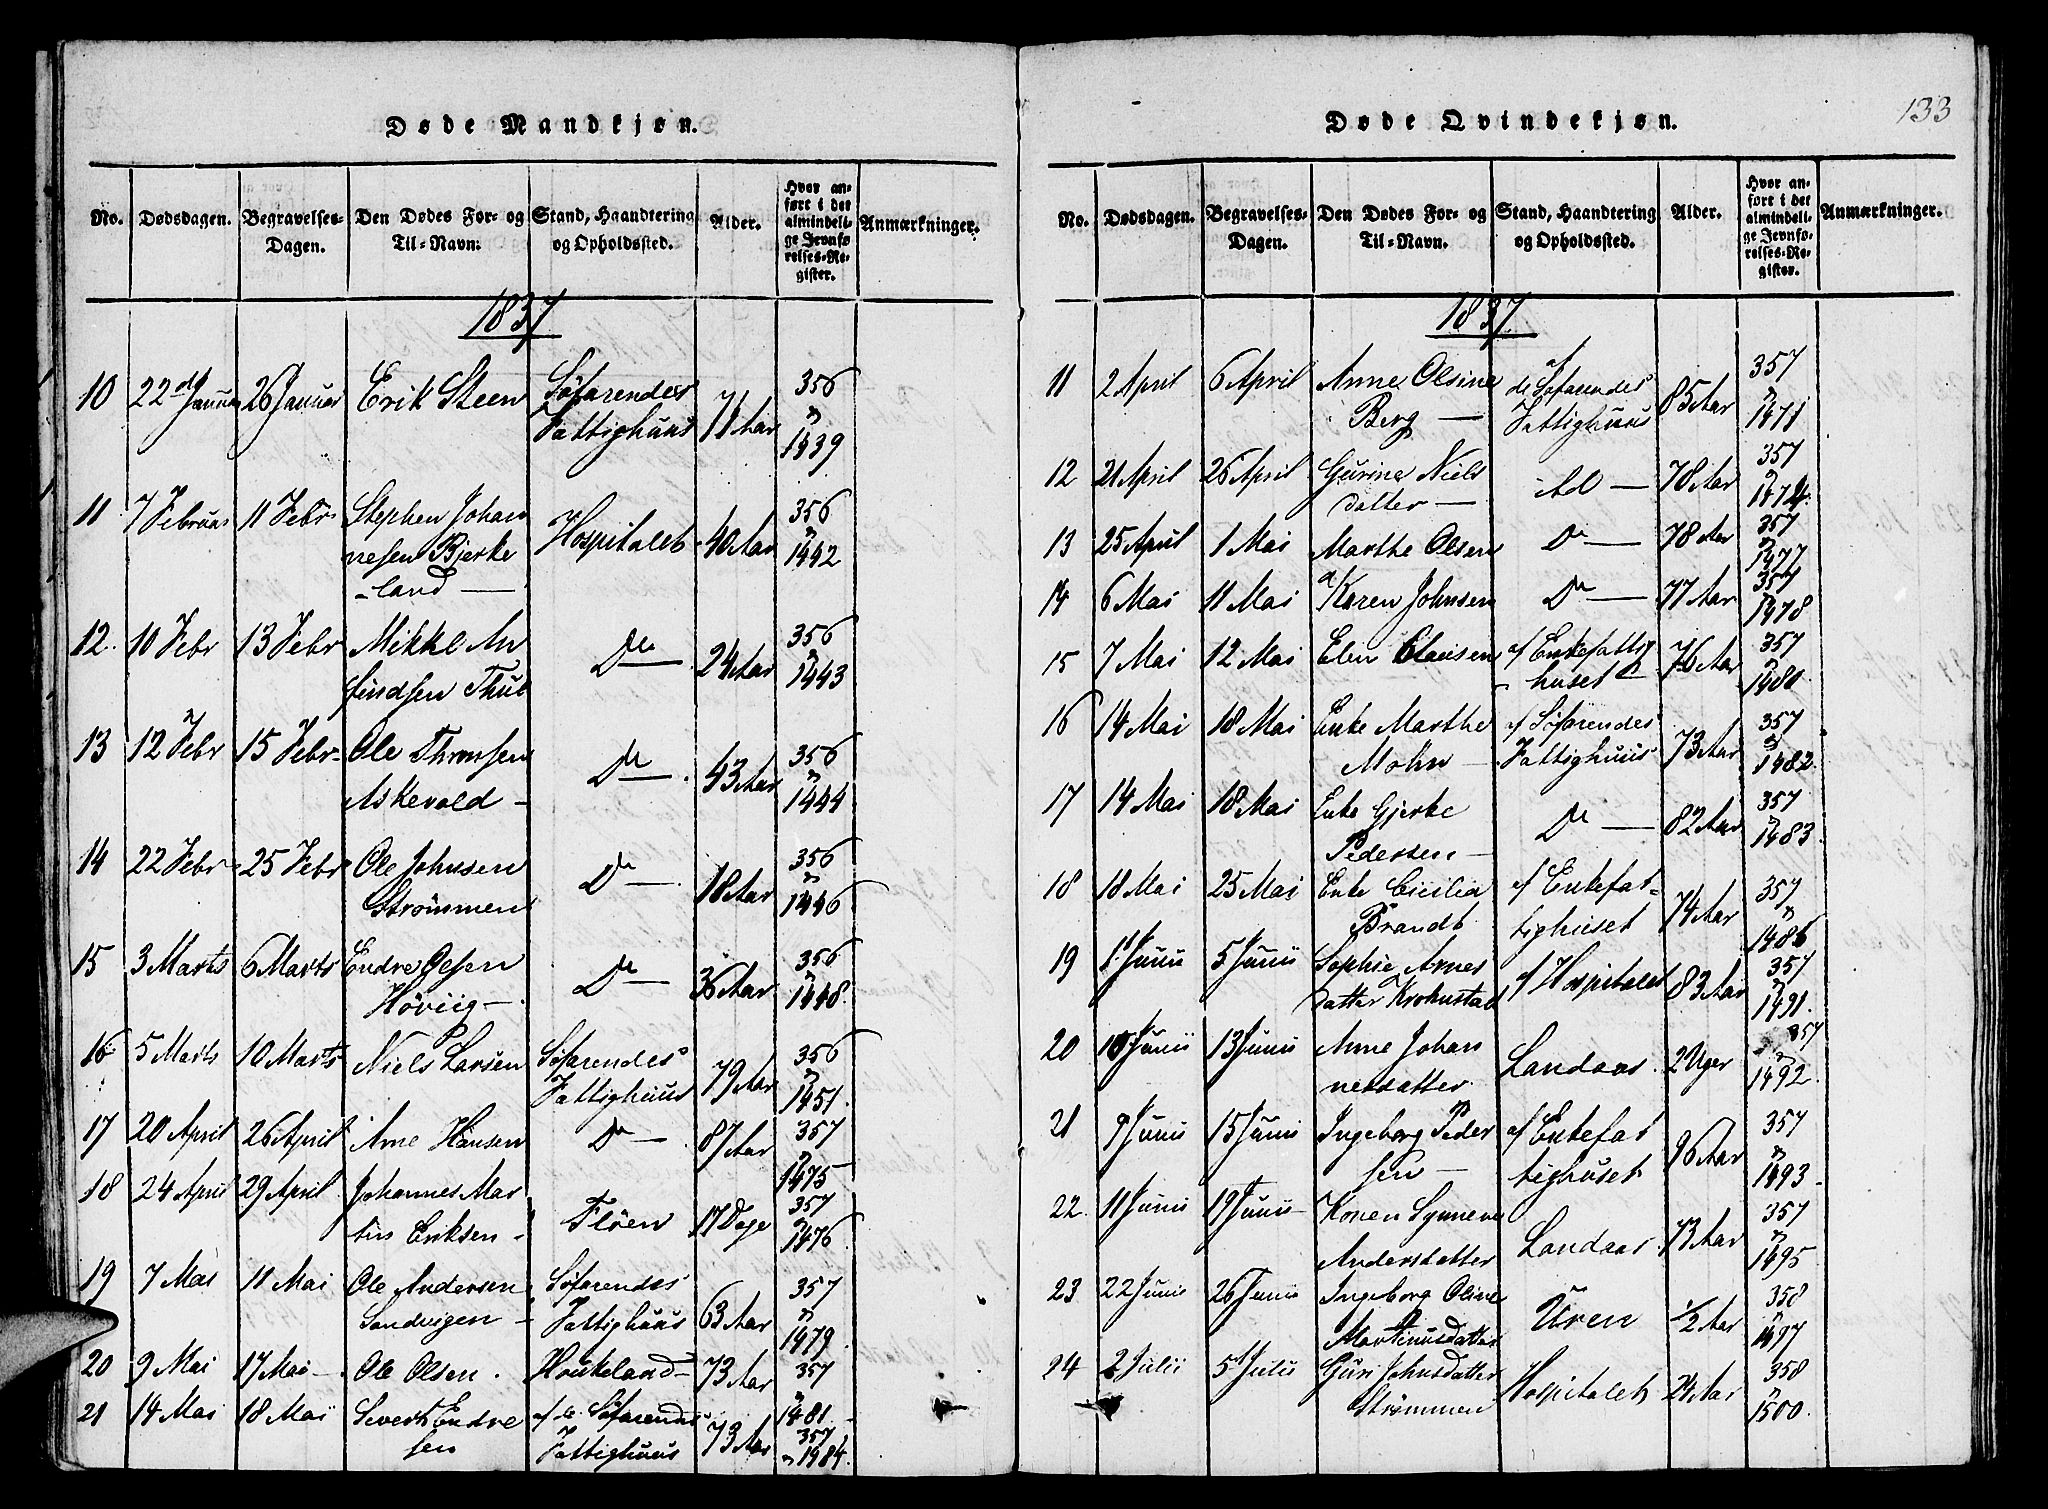 Døde Mandkjøn.
No. Dødsdagen. Begravelses-Dagen. Den Dødes For- og Til-Navn. Stand, Haandtering og Opholdssted. Alder. Hvor anført i det almindelige Jevnførelses-Register. Anmærkninger.
1837
10 22d Januar 26 Januar Erik Steen Søfarendes Fattighuus 71 Aar 356 n 1439
11 7 Februar 11 Febr Stephen Johan
nesen Bjerke
land — Hospitalet 40 Aar 356 n 1442
12. 10 Febr 13 Febr Mikkel An
findsen Thue Do — 24 Aar 356 n 1443
13 12 Febr 15 Febr Ole Thronsen
Askevold — Do — 43 Aar 356 n 1444
14 22 Febr 25 Febr Ole Johnsen
Strømmen Do — 18 Aar 356 n 1446
15 3 Marts 6 Marts Endre Olsen
Høviig — Do — 36 Aar 356 n 1448.
16 5 Marts 10 Marts Niels Larsen Søfarendes
Fattighuus 79 Aar 356 n 1451.
17 20 April 26 April Arne Hansen Do — 87 Aar 357 n 1475
18 24 April 29 April Johannes Mar
tin Eriksen — Fløen 17 Dage 357 n 1476
19 7 Mai 11 Mai Ole Andersen
Sandvigen — Søfarendes
Fattighuus 63 Aar 357 n 1479
20 9 Mai 17 Mai — Ole Olsen. Houkeland — 73 Aar 357 n 1481
21 14 Mai 18 Mai Sivert Endre
sen af de Søfarendes
Fattighuus 73 Aar 357 n 1984
133
Døde Qvindekjøn.
No. Dødsdagen. Begravelses-Dagen. Den Dødes For- og Til-Navn. Stand, Haandtering og Opholdssted. Alder. Hvor anført i det almindelige Jevnførelses-Register. Anmærkninger.
1837
11 2 April 6 April Anne Olsine
Berg — af de Søfarendes
Fattighuus 85 Aar 357 n 1471
12 21 April 26 April Gurine Niels
datter — Ad — 78 Aar 357 n 1474
13 25 April 1 Mai Marthe Olsen Do — 78 Aar 357 n 1477
14 6 Mai 11 Mai Karen Johnsen Do — 77 Aar 357 n 1478
15 7 Mai 12 Mai Elen Clausen af Enkefattig
huset 76 Aar 357 n 1480
16 14 Mai 18 Mai Enke Marthe
Mohn — af Søfarendes
Fattighuus 73 Aar 357 n 1482
17 14 Mai 18 Mai Enke Gjerke
Pedersen — Do — 82 Aar 357 n 1483
18 18 Mai 25 Mai Enke Cicilia
Brandt af Enkefat-
tighuset 74 Aar 357 n 1486
19 1 Junii 5 Junii Sophie Arnes
datter Krohnstad af Hospitalet 83 Aar 357 n 1491.
20 10 Junii 13 Junii Anne Johan
nesdatter. Landaas. 2 Uger 357 n 1492
21 9 Junii 15 Junii Ingeborg Peder
sen — af Enkefat
tighuset 96 Aar 357 n 1493
22. 11 Junii 19 Junii — Karen Synneve
Andersdatter Landaas. 73 Aar 357 n 1495
23 22 Junii 26 Junii Ingeborg Oline
Martinusdatter Uren 1/2 Aar 358 n 1497
24 2 Julii 5 Julii Guri Johnsdatter
Strømmen Hospitalet 24 Aar 358 n 1500.